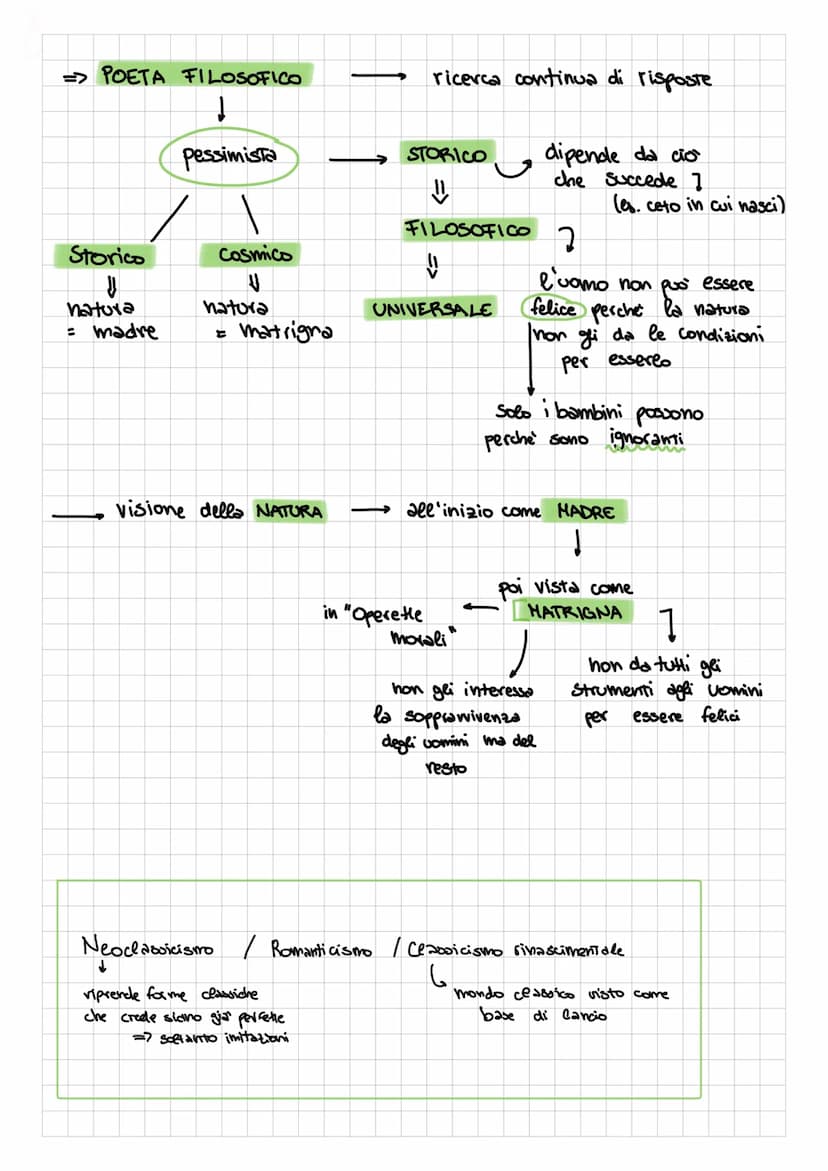 => POETA FILOSOFICO → ricerca continua di risposte
pessimista → STORICO dipende da ciò
che succede
(es. ceto in cui nasci)
FILOSOFICO
Storico Cosmico
l'uomo non può essere
natura natura UNIVERSALE felice perché la natura
= madre = matrigna non gli da le condizioni
per esserlo
solo i bambini possono
perchè sono ignoranti
→ visione della NATURA → all'inizio come MADRE
poi vista come
in "Operette MATRIGNA
morali"
non da tutti gli
non gli interessa strumenti agli uomini
la soppravvivenza per essere felici
degli uomini ma del
resto
Neoclassicismo / Romanticismo / Classicismo rinascimentale
riprende forme classiche mondo classico visto come
che crede siano già perfette base di lancio
=> soltanto imitazioni